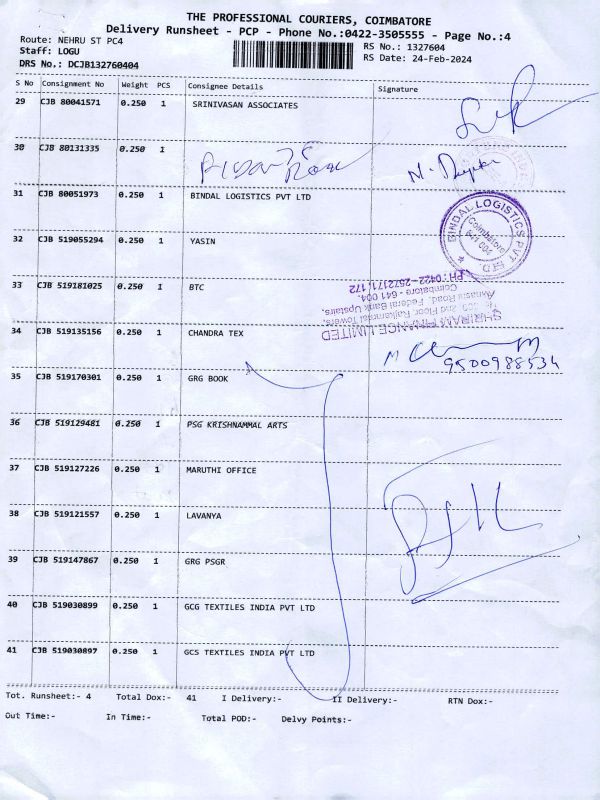 THE PROFESSIONAL COURIERS, COIMBATORE
Delivery Runsheet - PCP - Phone No.:0422-3505555 - Page No.:4
Route: NEHRU ST PC4
RS No.: 1327604
Staff: LOGU
RS Date: 24-Feb-2024
DRS No.: DCJB132760404
S No Consignment No Weight PCS Consignee Details Signature
29 CJB 80041571 0.250 1 SRINIVASAN ASSOCIATES
30 CJB 80131335 0.250 1
31 CJB 80051973 0.250 1 BINDAL LOGISTICS PVT LTD
BINDAL LOGISTICS PVT LTD.
Coimbatore
641 004
32 CJB 519055294 0.250 1 YASIN
33 CJB 519181025 0.250 1 BTC
SHRIRAM FINANCE LIMITED
2nd Floor, Rajkannai Towers,
Avinashi Road, Federal Bank Upstairs,
Coimbatore - 641 004.
PH: 0422-2572171, 172
34 CJB 519135156 0.250 1 CHANDRA TEX
9500988534
35 CJB 519170301 0.250 1 GRG BOOK
36 CJB 519129481 0.250 1 PSG KRISHNAMMAL ARTS
37 CJB 519127226 0.250 1 MARUTHI OFFICE
38 CJB 519121557 0.250 1 LAVANYA
39 CJB 519147867 0.250 1 GRG PSGR
40 CJB 519030899 0.250 1 GCG TEXTILES INDIA PVT LTD
41 CJB 519030897 0.250 1 GCS TEXTILES INDIA PVT LTD
Tot. Runsheet:- 4 Total Dox:- 41 I Delivery:- II Delivery:- RTN Dox:-
Out Time:- In Time:- Total POD:- Delvy Points:-